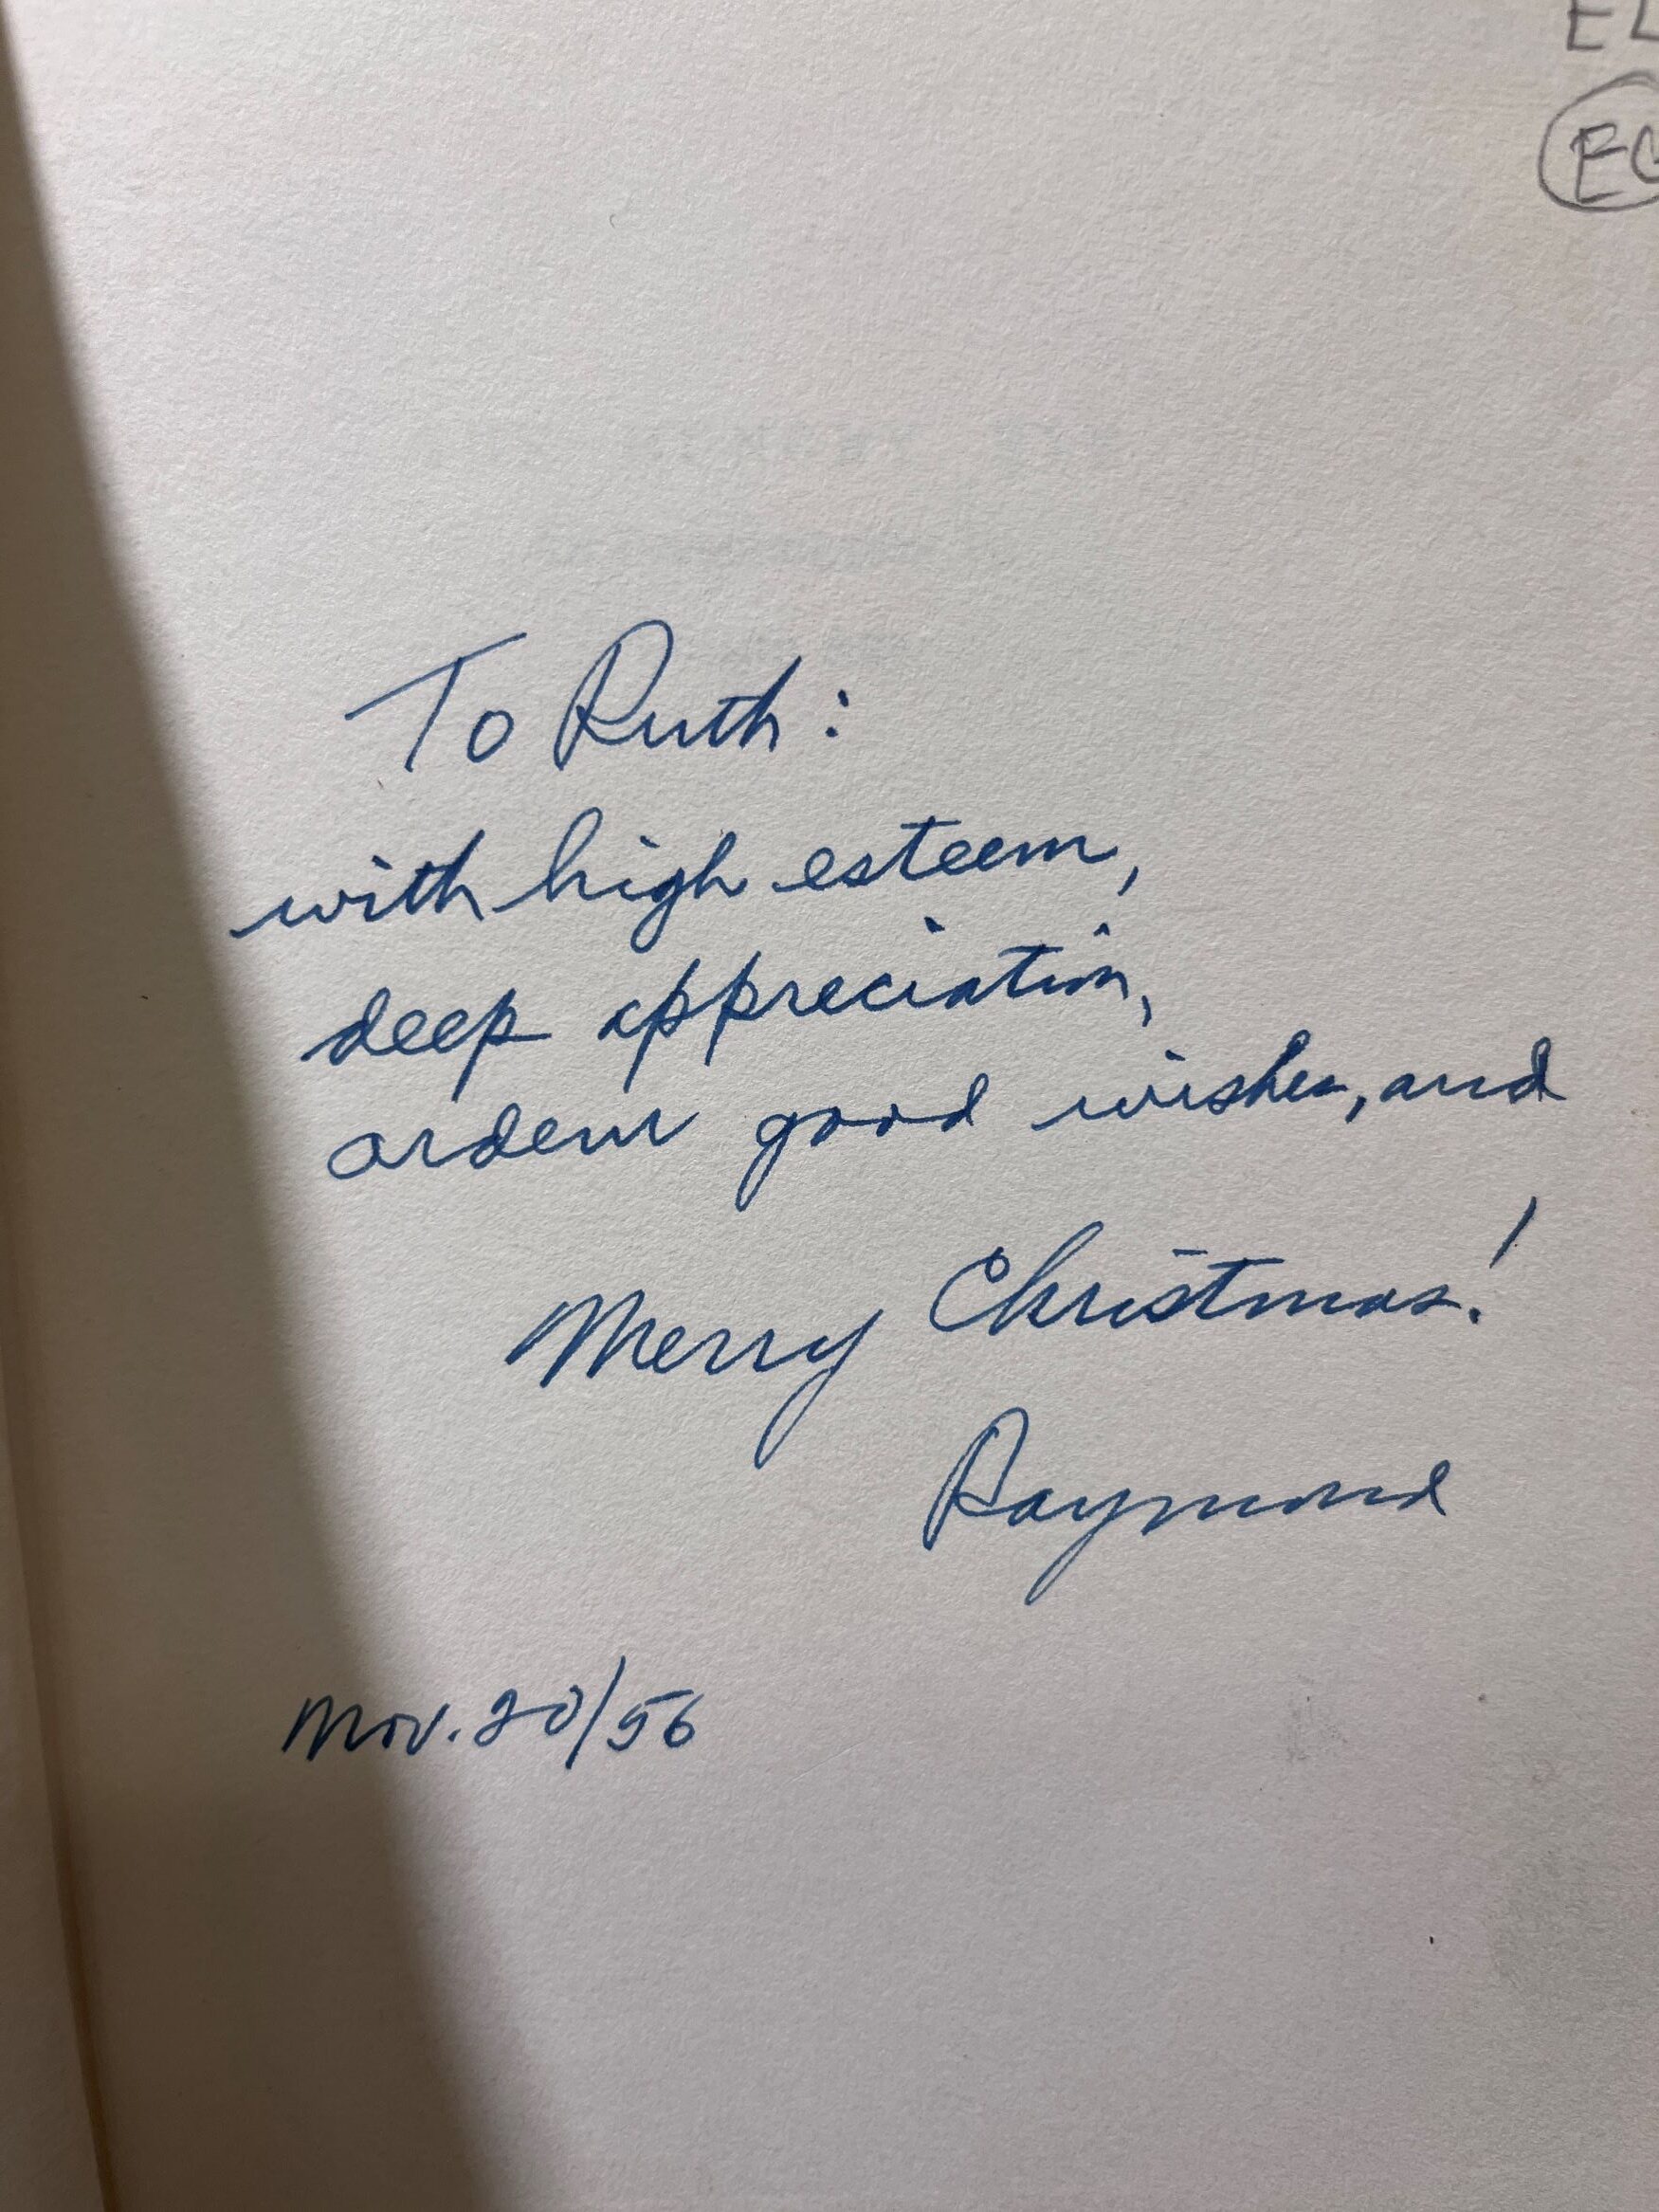 EL
EC
To Ruth:
with high esteem,
deep appreciation,
ardent good wishes, and
Merry Christmas!
Raymond
Nov. 20/56